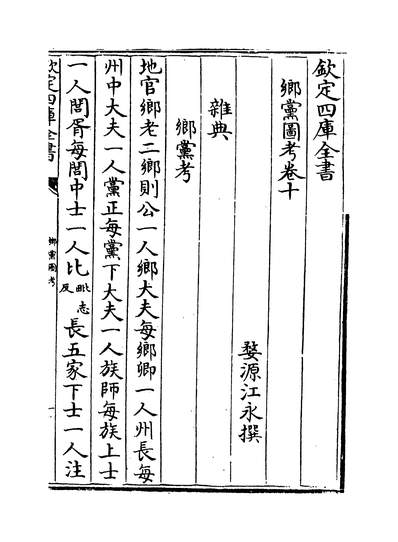 欽定四庫全書
鄉黨圖考卷十
婺源江永撰
雜典
鄉黨考
地官鄉老二鄉則公一人鄉大夫每鄉卿一人州長每
州中大夫一人黨正每黨下大夫一人族師每族上士
一人閭胥每閭中士一人比毗志反長五家下士一人注
欽定四庫全書
鄉黨圖考
一